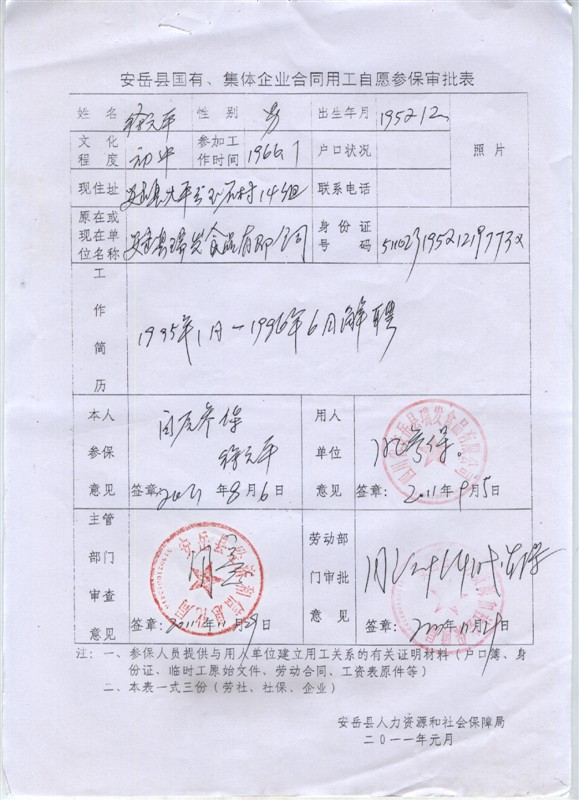 安岳县国有、集体企业合同用工自愿参保审批表
姓名 徐元平 性别 男 出生年月 1952.12 照片
文化程度 初中 参加工作时间 1966.7 户口状况
现住址 14组 联系电话
原在或现在单位名称 安岳县瑞发食品有限公司 身份证号码
工作简历
1995年1月—1996年6月解聘
本人参保意见 自愿参保
徐元平
签章: 2011年8月6日
用人单位意见
签章: 2011年9月5日
主管部门审查意见 同意
签章: 2011年11月29日
劳动部门审批意见
签章: 年11月29日
注:一、参保人员提供与用人单位建立用工关系的有关证明材料(户口簿、身
份证、临时工原始文件、劳动合同、工资表原件等)
二、本表一式三份(劳社、社保、企业)
安岳县人力资源和社会保障局
二〇一一年元月